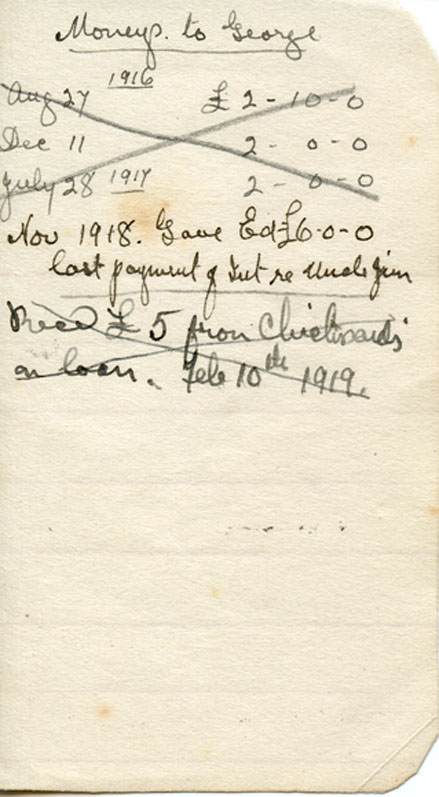 Moneys. to George
1916
Aug 27 £ 2 - 10 - 0
Dec 11 2 - 0 - 0
July 28 1917 2 - 0 - 0
Nov 1918. Gave Ed £6-0-0
last payment of Int re Uncle Jim
Recd £ 5 from
on loan. Feb 10th 1919.